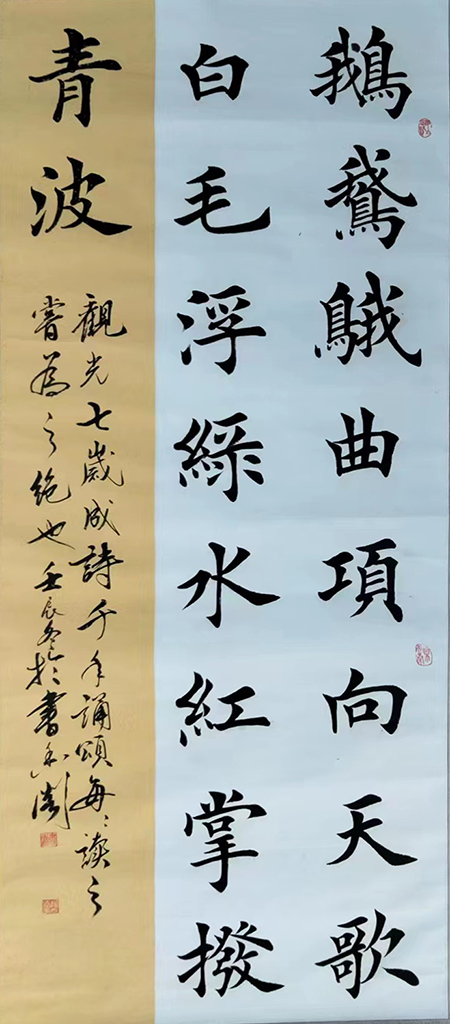 鵝鵞䳘曲項向天歌
白毛浮綠水紅掌撥
青波
觀光七歲成詩千年誦頌每々讀之
嘗為之絕也壬辰冬於書